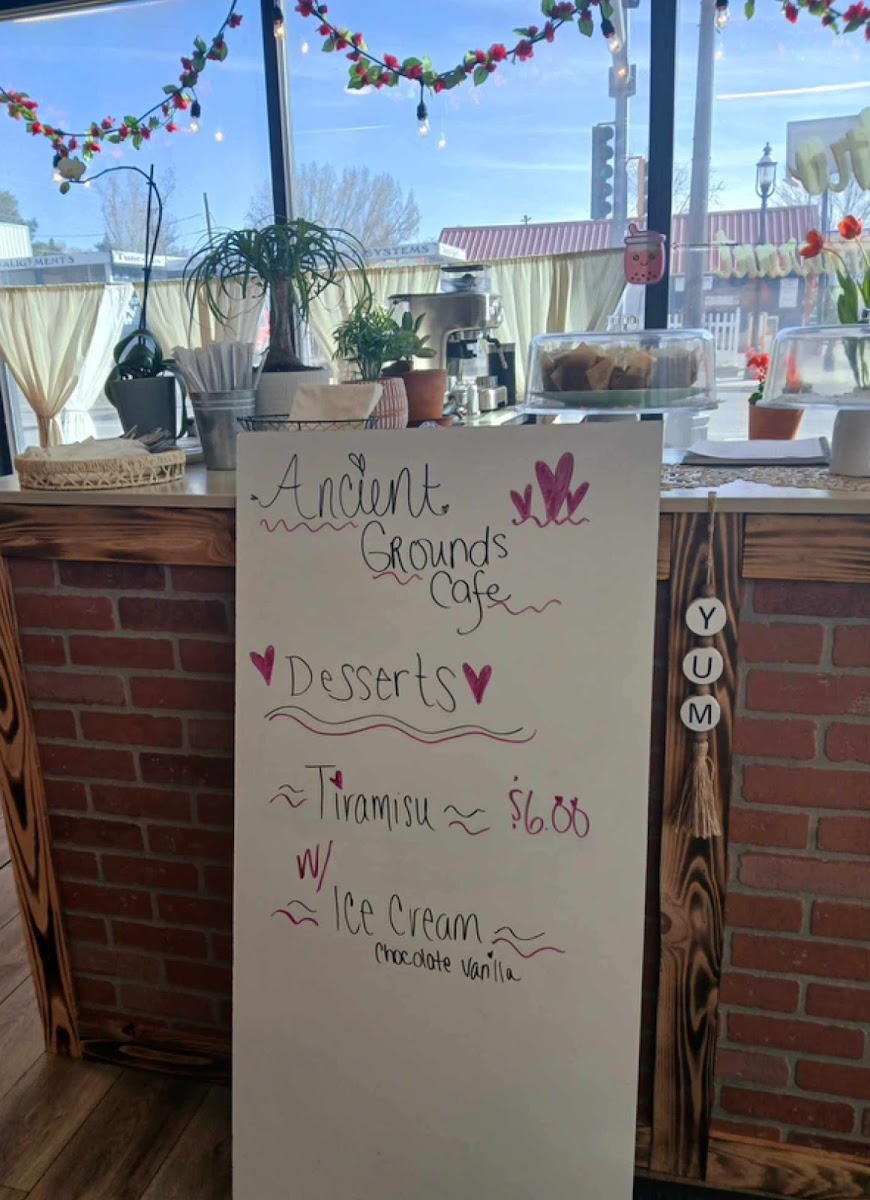 ALIGNMENTS
TUNE-UPS
SYSTEMS
Ancient
Grounds
Cafe
Desserts
Tiramisu $6.00
w/
Ice Cream
Chocolate Vanilla
Y
U
M